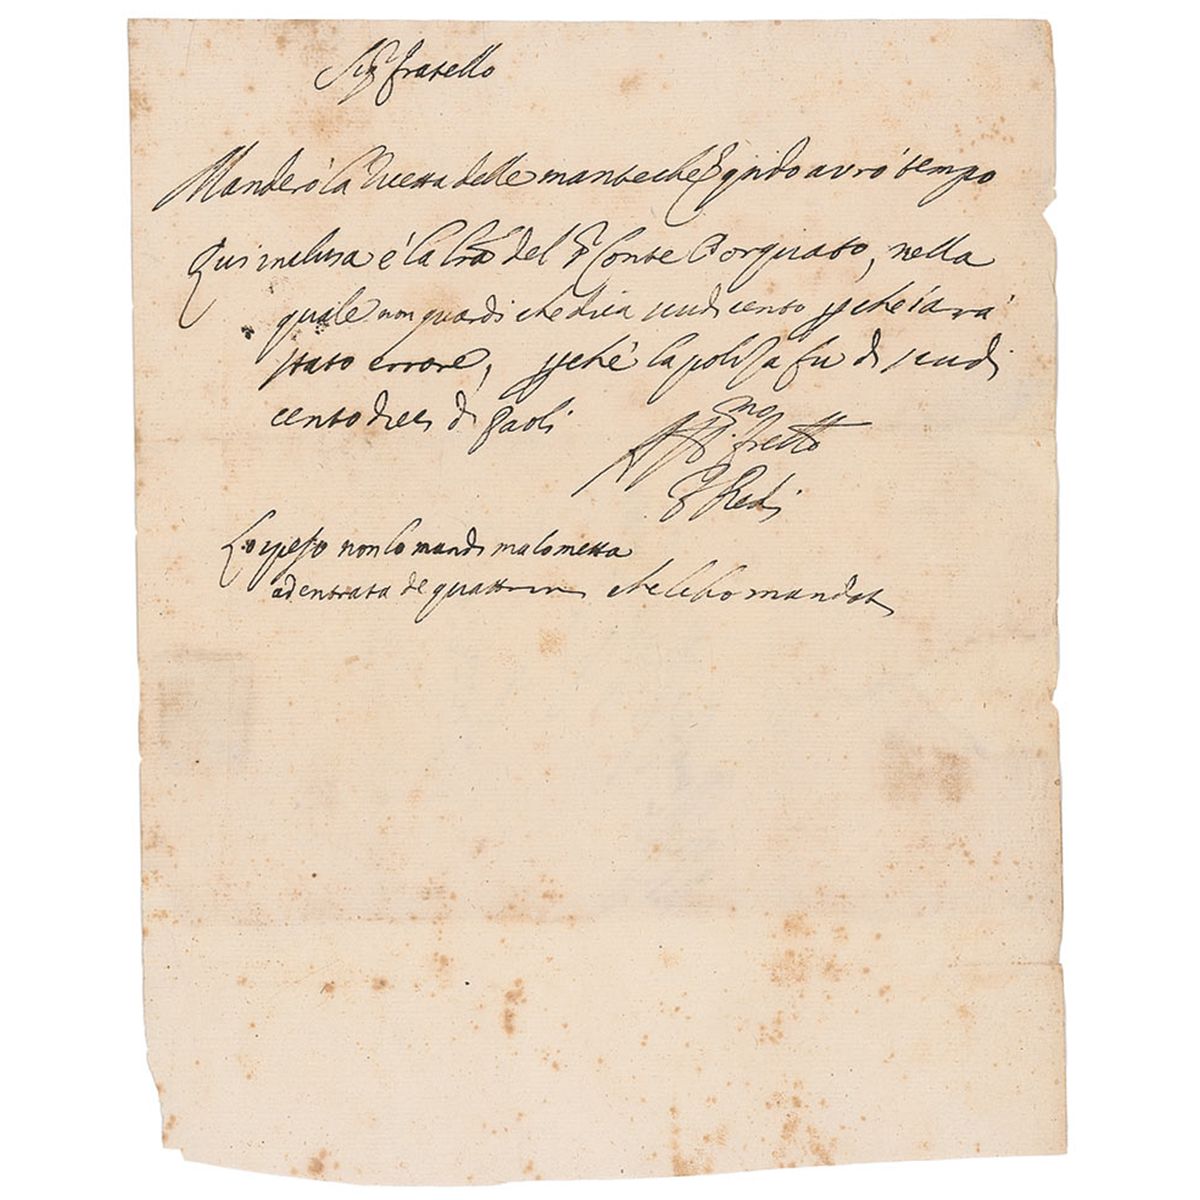 Sig.r fratello
Manderò la Ricetta delle manteche quando avrò tempo
Qui inclusa è la lra del Sr Conte Torquato, nella
quale non guardi che dica scudi cento pche sarà
stato errore, pchè la poliza fu di scudi
cento dieci di Paoli
Aff.mo fretto
F Redi
Lo speso non lo mandi ma lo metta
ad entrata de quattrini che le ho mandati